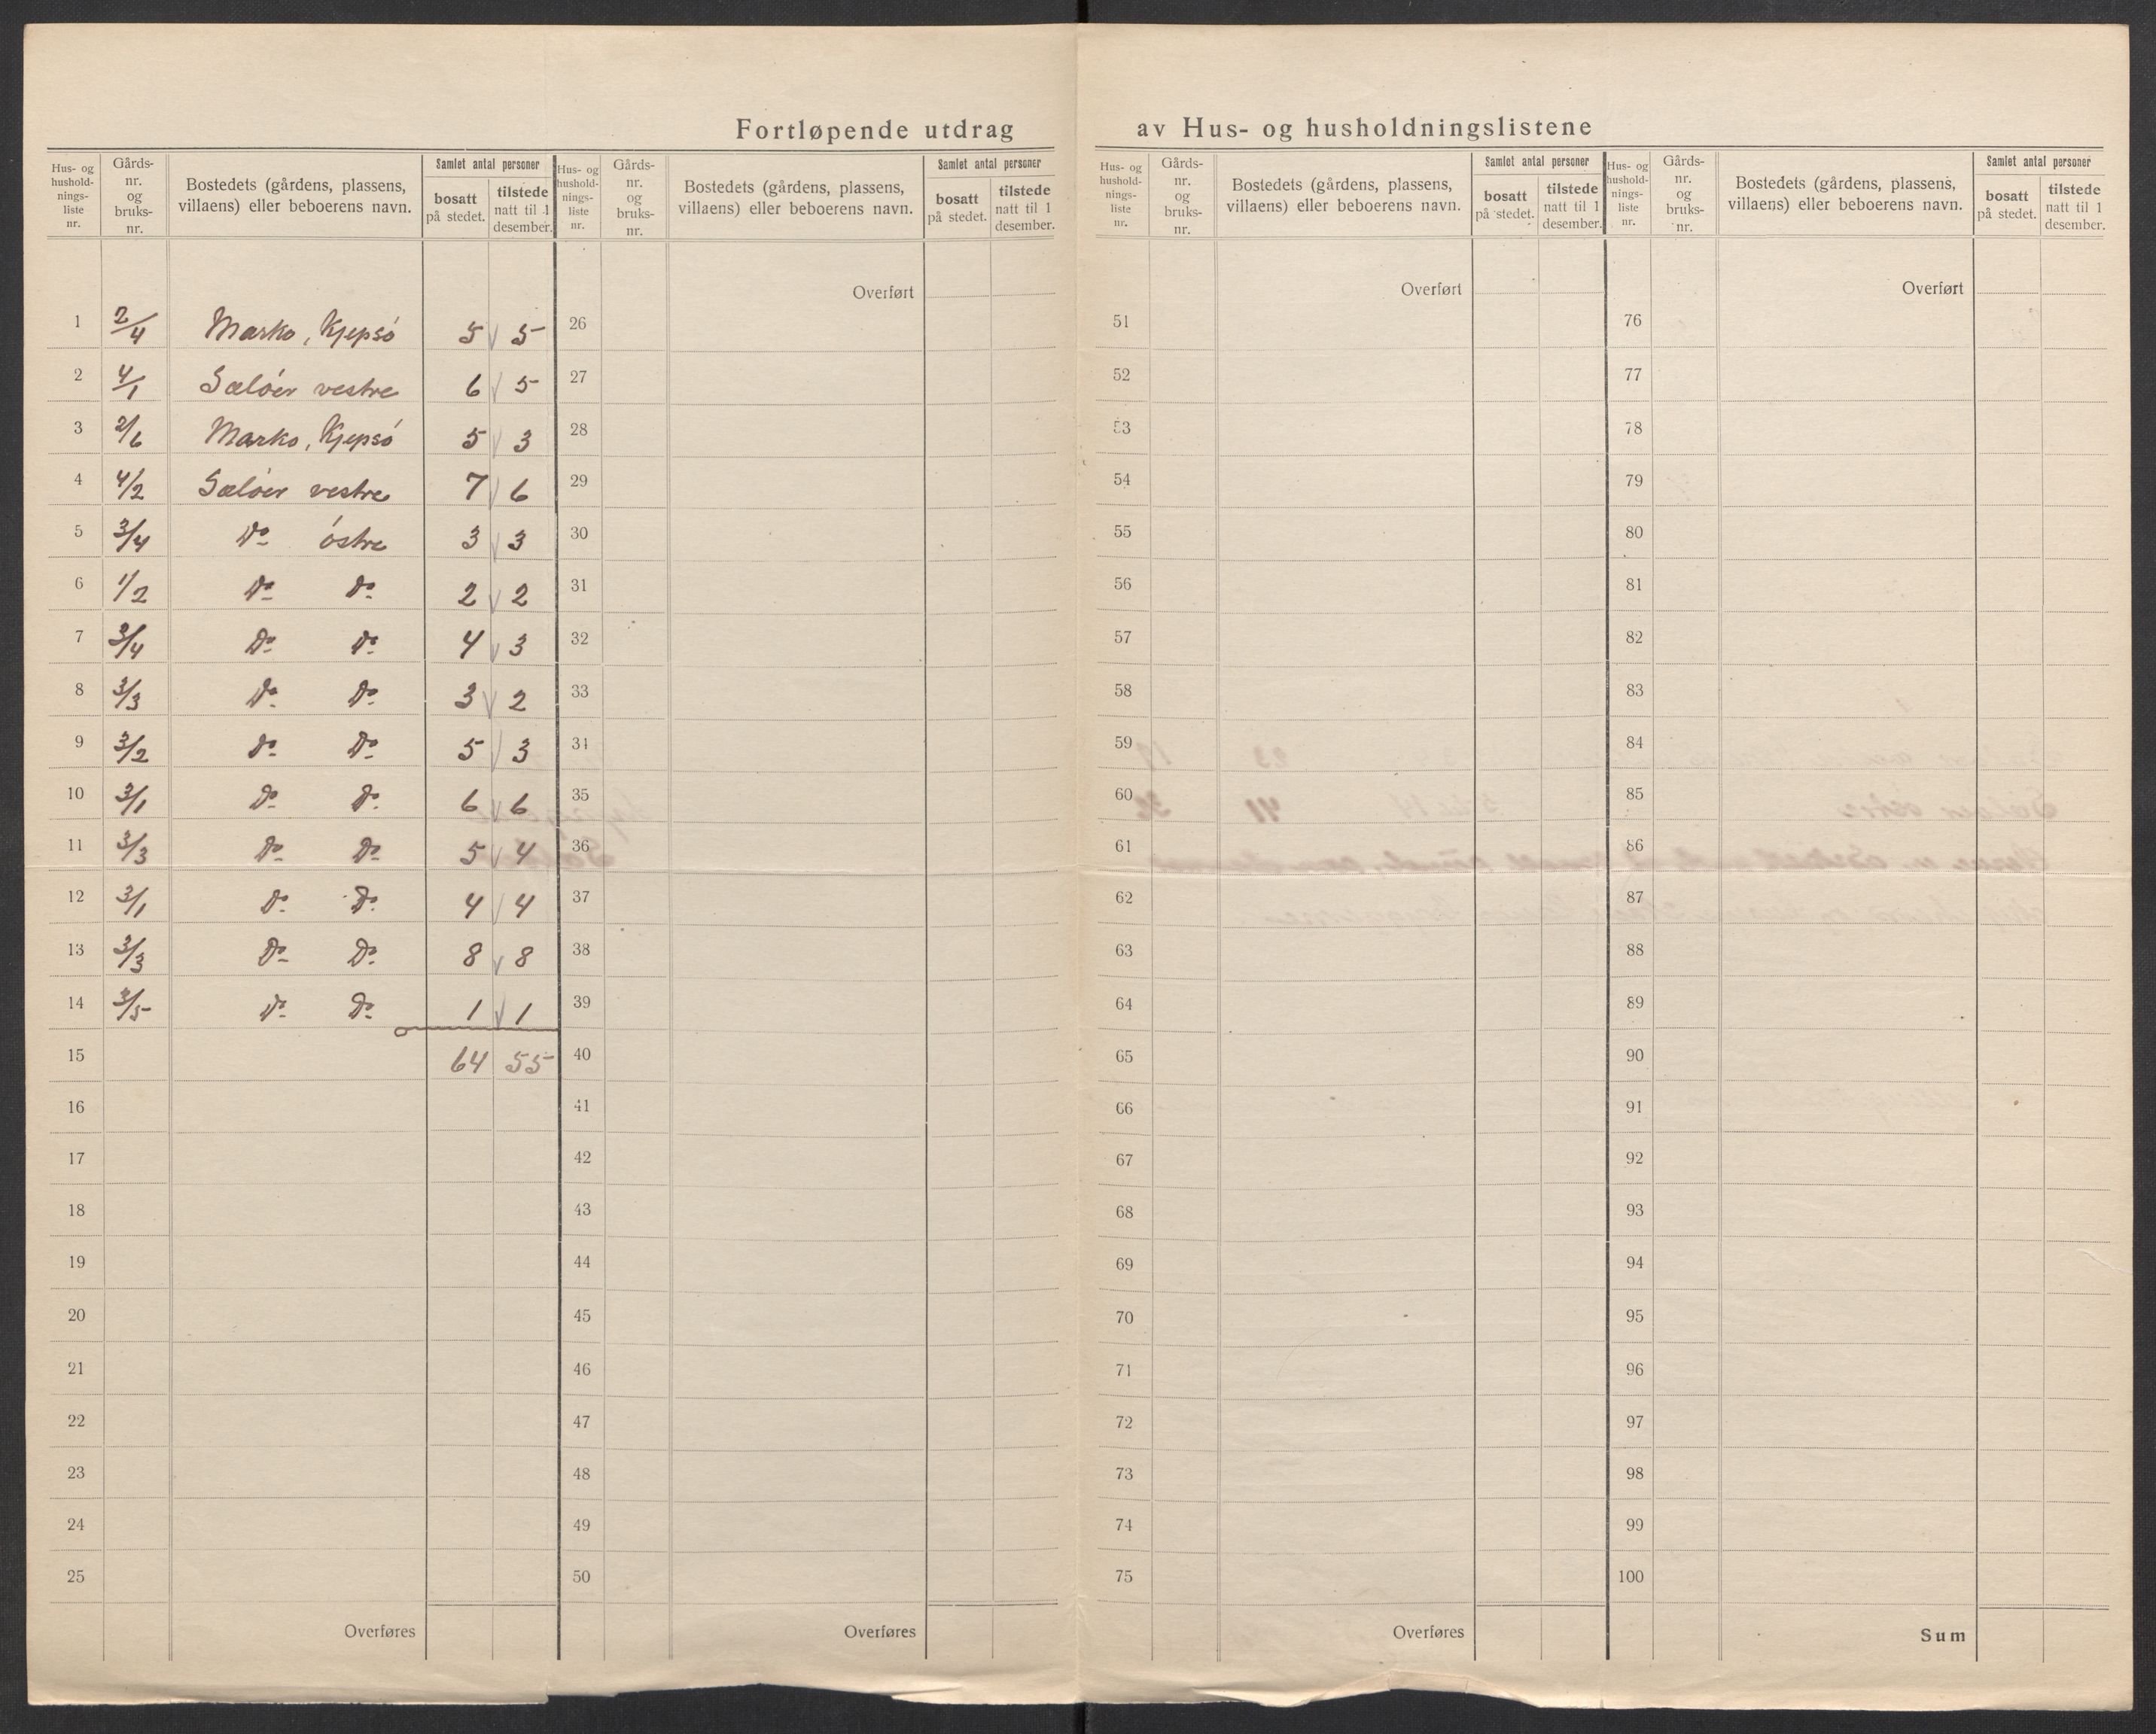 Fortløpende utdrag av Hus- og husholdningslistene
Hus- og husholdnings-liste nr. | Gårds-nr. og bruks-nr. | Bostedets (gårdens, plassens, villaens) eller beboerens navn. | Samlet antal personer | bosatt på stedet. | tilstede natt til 1 desember.
Hus- og hushold-nings-liste nr. | Gårds-nr. og bruks-nr. | Bostedets (gårdens, plassens, villaens) eller beboerens navn. | Samlet antal personer | bosatt på stedet. | tilstede natt til 1 desember.
Hus- og hushold-nings-liste nr. | Gårds-nr. og bruks-nr. | Bostedets (gårdens, plassens, villaens) eller beboerens navn. | Samlet antal personer | bosatt på stedet. | tilstede natt til 1 desember.
Hus- og hushold-nings-liste nr. | Gårds-nr. og bruks-nr. | Bostedets (gårdens, plassens, villaens) eller beboerens navn. | Samlet antal personer | bosatt på stedet. | tilstede natt til 1 desember.
Overført Overført Overført
1 2/4 Marko, Kjepsö 5 5 26 51 76
2 4/1 Sælöer vestre 6 5 27 52 77
3 2/6 Marko, Kjepsö 5 3 28 53 78
4 4/2 Sælöer vestre 7 6 29 54 79
5 3/4 Do östre 3 3 30 55 80
6 1/2 Do Do 2 2 31 56 81
7 3/4 Do Do 4 3 32 57 82
8 3/3 Do Do 3 2 33 58 83
9 3/2 Do Do 5 3 34 59 84
10 3/1 Do Do 6 6 35 60 85
11 3/3 Do Do 5 4 36 61 86
12 3/1 Do Do 4 4 37 62 87
13 3/3 Do Do 8 8 38 63 88
14 3/5 Do Do 1 1 39 64 89
15 64 55 40 65 90
16 41 66 91
17 42 67 92
18 43 68 93
19 44 69 94
20 45 70 95
21 46 71 96
22 47 72 97
23 48 73 98
24 49 74 99
25 50 75 100
Overføres Overføres Overføres Sum